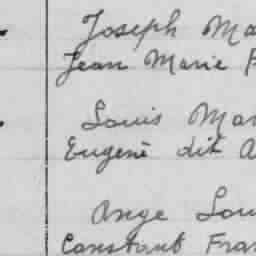 Joseph Ma
Jean Marie
Louis Mar
Eugene dit
Ange Lou
Constant Fran